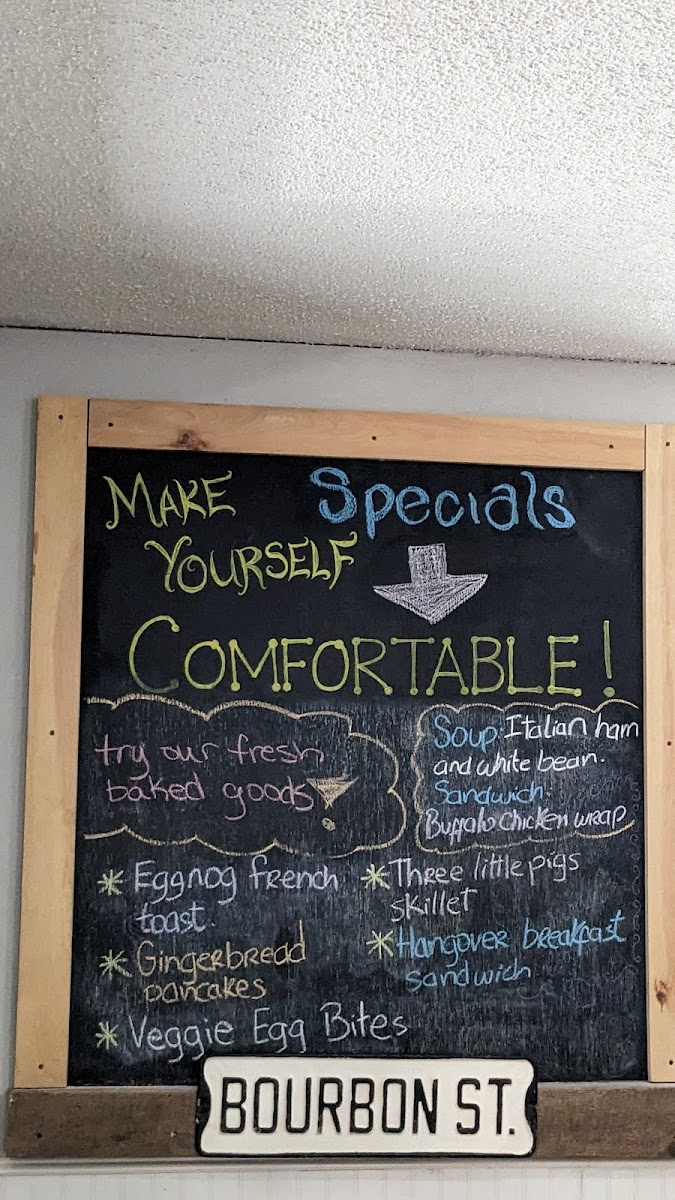 MAKE
YOURSELF
COMFORTABLE!
Specials
try our fresh
baked goods
Soup: Italian ham
and white bean.
Sandwich:
Buffalo chicken wrap
* Eggnog french
toast.
* Gingerbread
pancakes
* Veggie Egg Bites
* Three little pigs
skillet
* Hangover breakfast
sandwich
BOURBON ST.